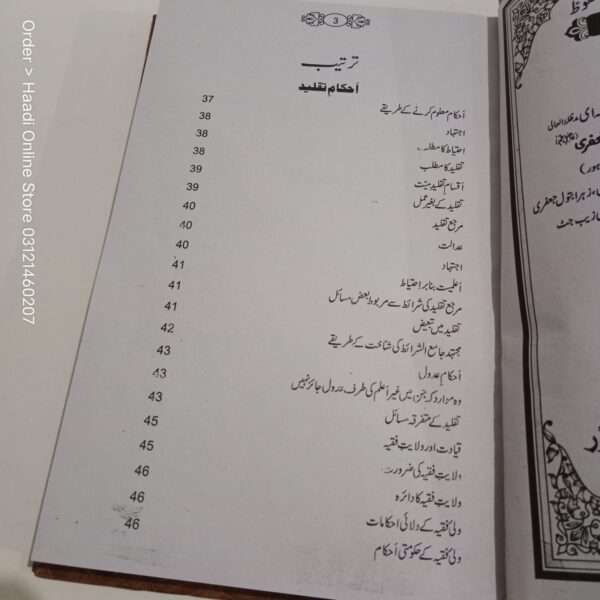 3
ترتیب
أحکام تقلید
أحکام معلوم کرنے کے طریقے 37
اجتہاد 38
احتیاط کا مطلب 38
تقلید کا مطلب 39
أقسام تقلید میّت 39
تقلید کے بغیر عمل 40
مرجع تقلید 40
عدالت 40
اجتہاد 41
أعلمیت بنابر احتیاط 41
مرجع تقلید کی شرائط سے مربوط بعض مسائل 41
تقلید میں تبعیض 42
مجتہد جامع الشرائط کی شناخت کے طریقے 43
أحکام عدول 43
وہ موارد کہ جن میں غیر أعلم کی طرف عدول جائز نہیں 43
تقلید کے متفرقہ مسائل 45
قیادت اور ولایتِ فقیہ 45
ولایتِ فقیہ کی ضرورت 46
ولایتِ فقیہ کا دائرہ 46
ولی فقیہ کے ولائی احکامات 46
ولی فقیہ کے حکومتی أحکام
مدظلہ العالی
جعفری
زہرا بتول جعفری
زیب جٹ
Order > Haadi Online Store 03121460207